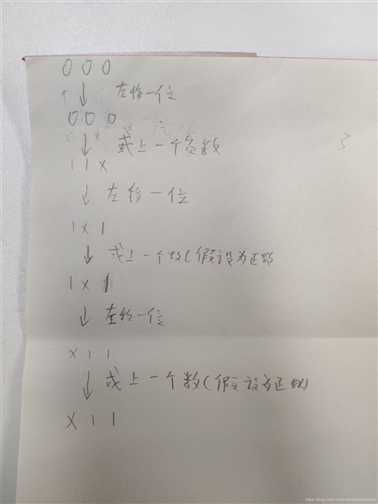 000
↓ 左移一位
000
↓ 或上一个负数
11x
↓ 左移一位
1x1
↓ 或上一个数(假设为正数
1x1
↓ 左移一位
x11
↓ 或上一个数(假设为正数)
x11